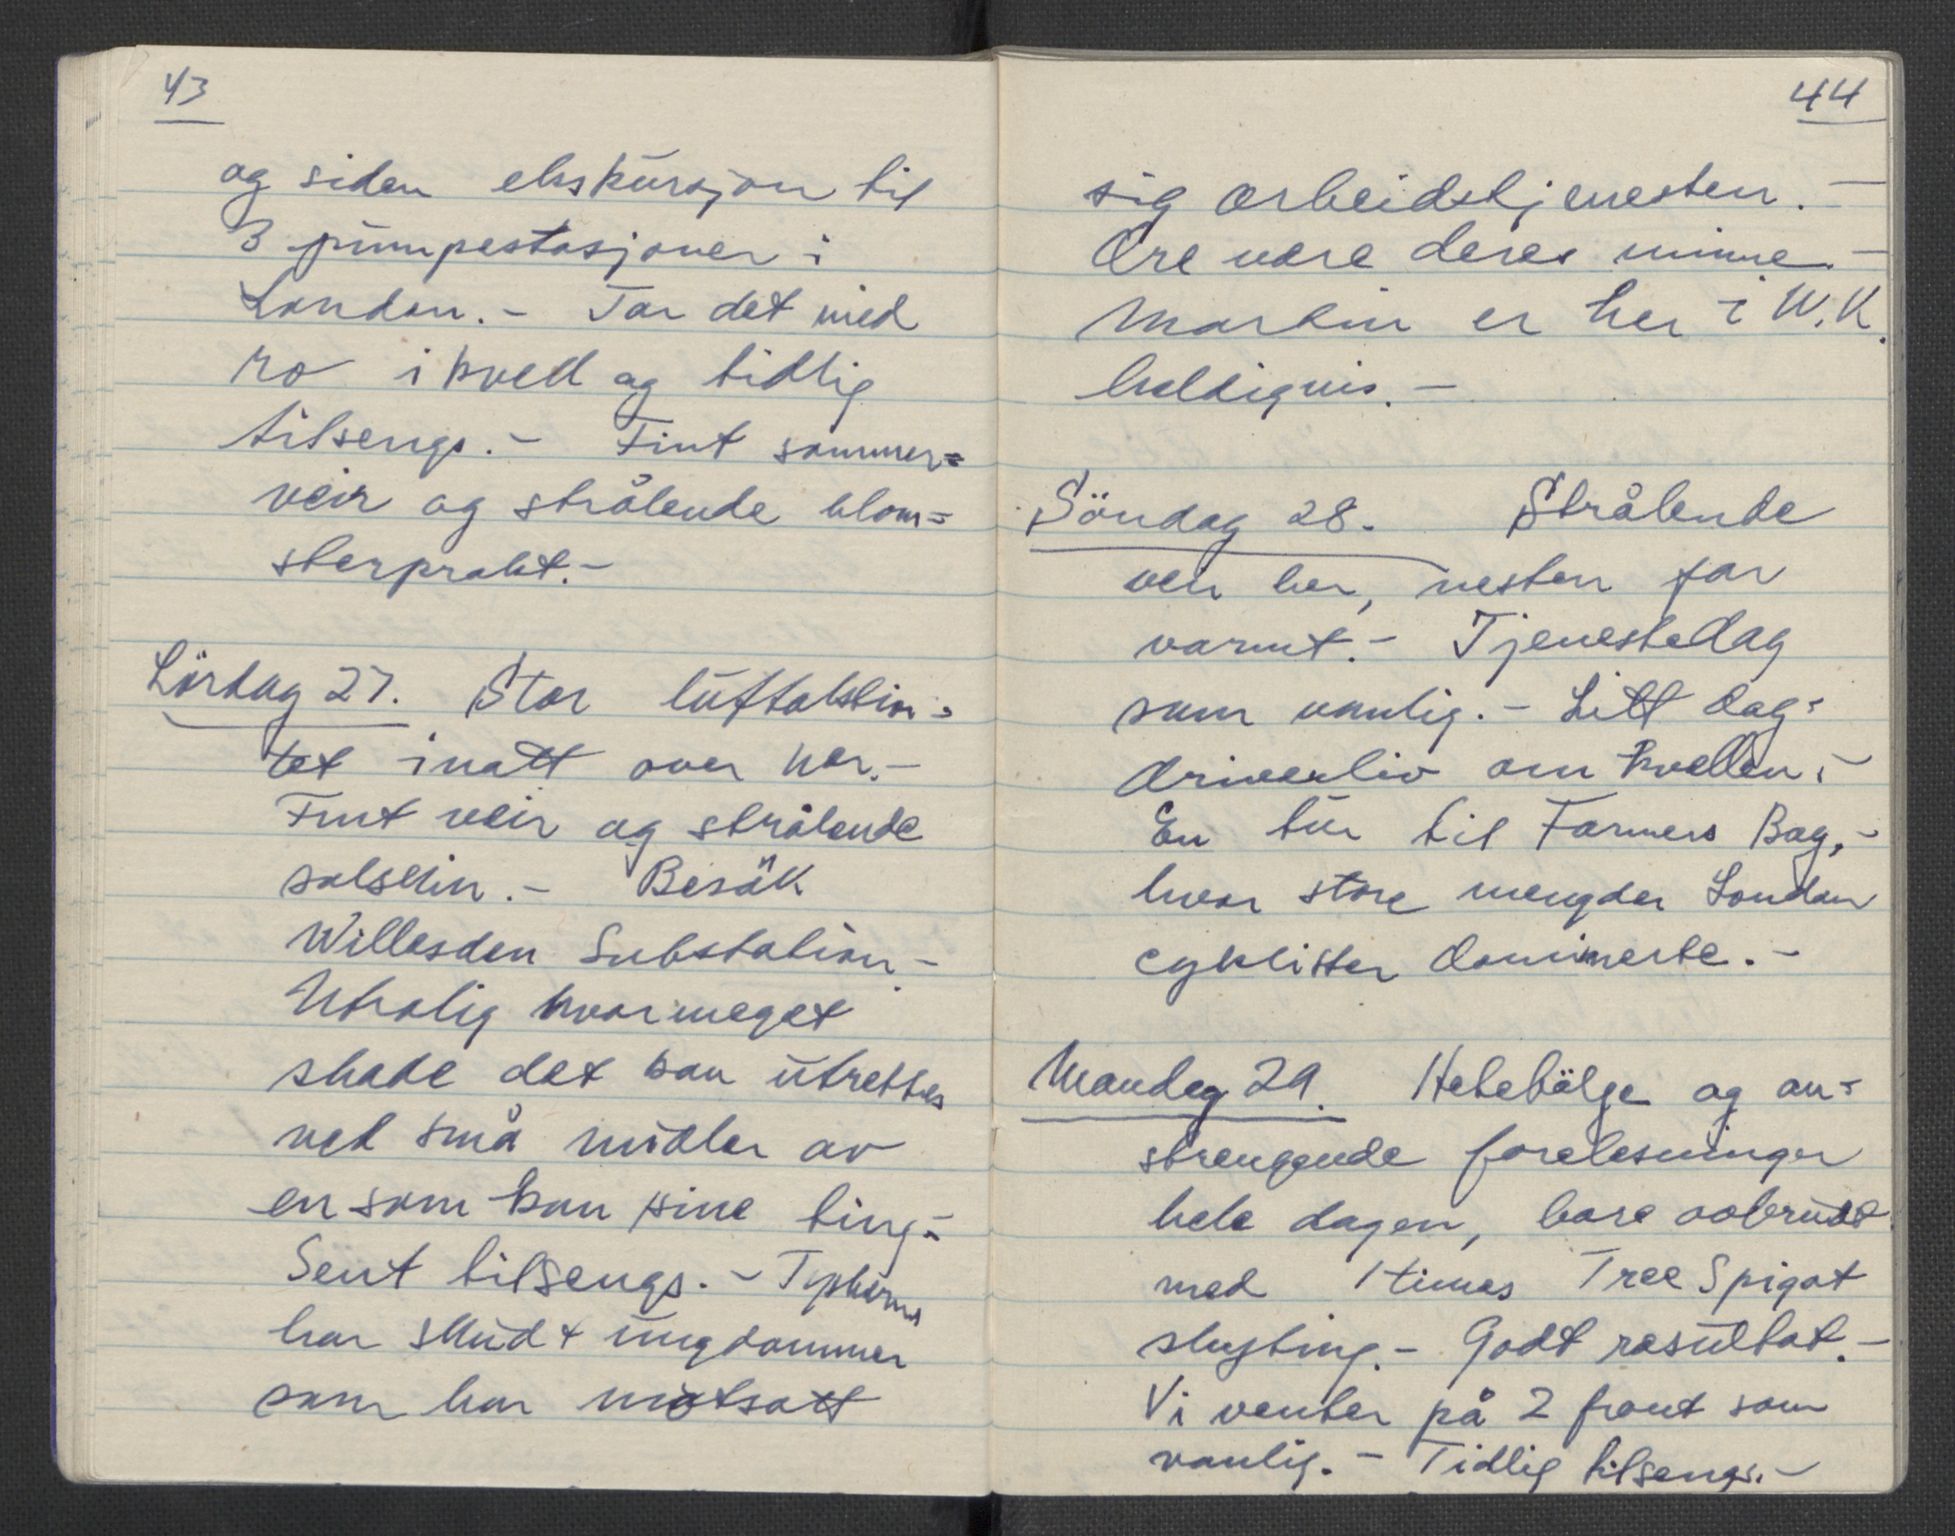 43
og siden ekskursjon til
3 pumpestasjoner i
London. - Tar det med
ro i kveld og tidlig
tilsengs. - Fint sommer=
veir og strålende blom=
sterprakt. -
Lördag 27. Stor luftaktivi=
tet inatt over her. -
Fint veir og strålende
solskin. - Besök
Willesden Substation. -
Utrolig hvor meget
skade det kan utrettes
ved små midler av
en som kan sine ting. -
Sent tilsengs. -
har skudt ungdommer
som har motsatt
44
sig arbeidstjenesten. -
Ære være deres minne. -
Martin er her i W.K.
heldigvis. -
Söndag 28. Strålende
veir her, nesten for
varmt. - Tjenestedag
som vanlig. - Litt dag=
driverliv om kvellen. -
En tur til Farmers Boy, -
hvor store mengder London
cyklister dominerte. -
Mandag 29. Hetebölge og an=
strengende forelesninger
hele dagen, bare avbrudt
med 1 times Tree Spigot
skyting. - Godt resultat. -
Vi venter på 2 front som
vanlig. - Tidlig tilsengs. -